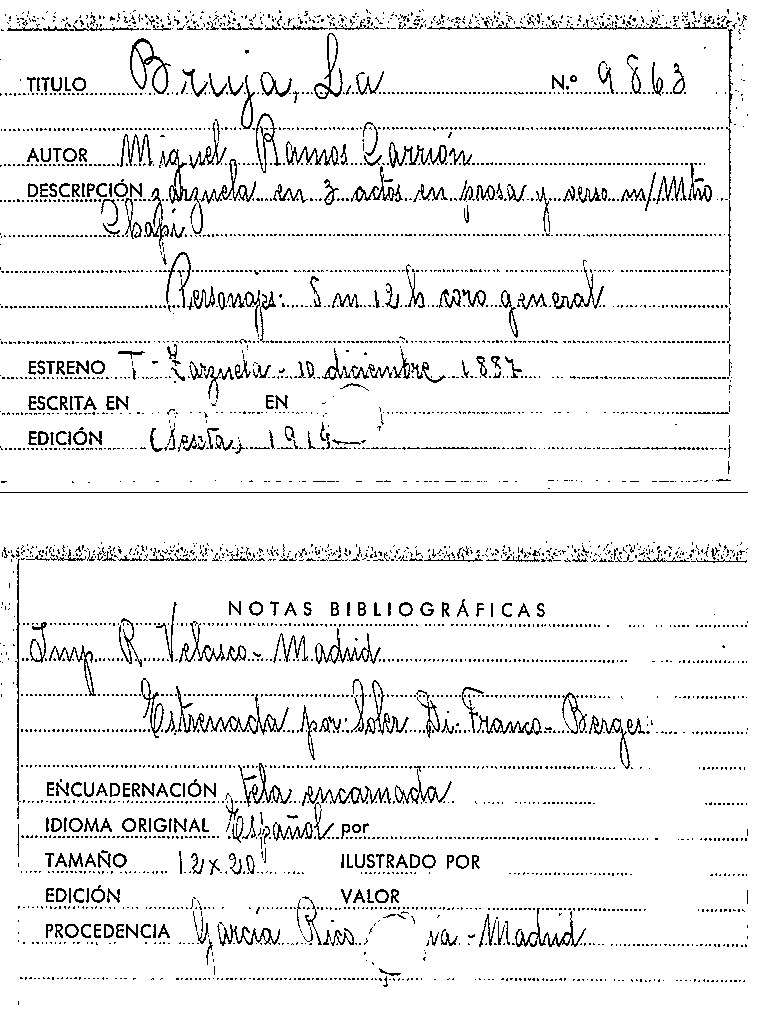 TITULO Bruja, La N.º 9863
AUTOR Miguel Ramos Carrión
DESCRIPCIÓN zarzuela en 3 actos en prosa y verso m/Mtro
Chapí
Personajes: 8 m 12 h coro general
ESTRENO T - Zarzuela - 10 diciembre 1887
ESCRITA EN EN
EDICIÓN (Sexta) 1914
NOTAS BIBLIOGRÁFICAS
Imp R. Velasco - Madrid
Estrenada por: Soler Di-Franco - Berges
ENCUADERNACIÓN tela encarnada
IDIOMA ORIGINAL Español por
TAMAÑO 12 x 20 ILUSTRADO POR
EDICIÓN VALOR
PROCEDENCIA García Rico - Madrid